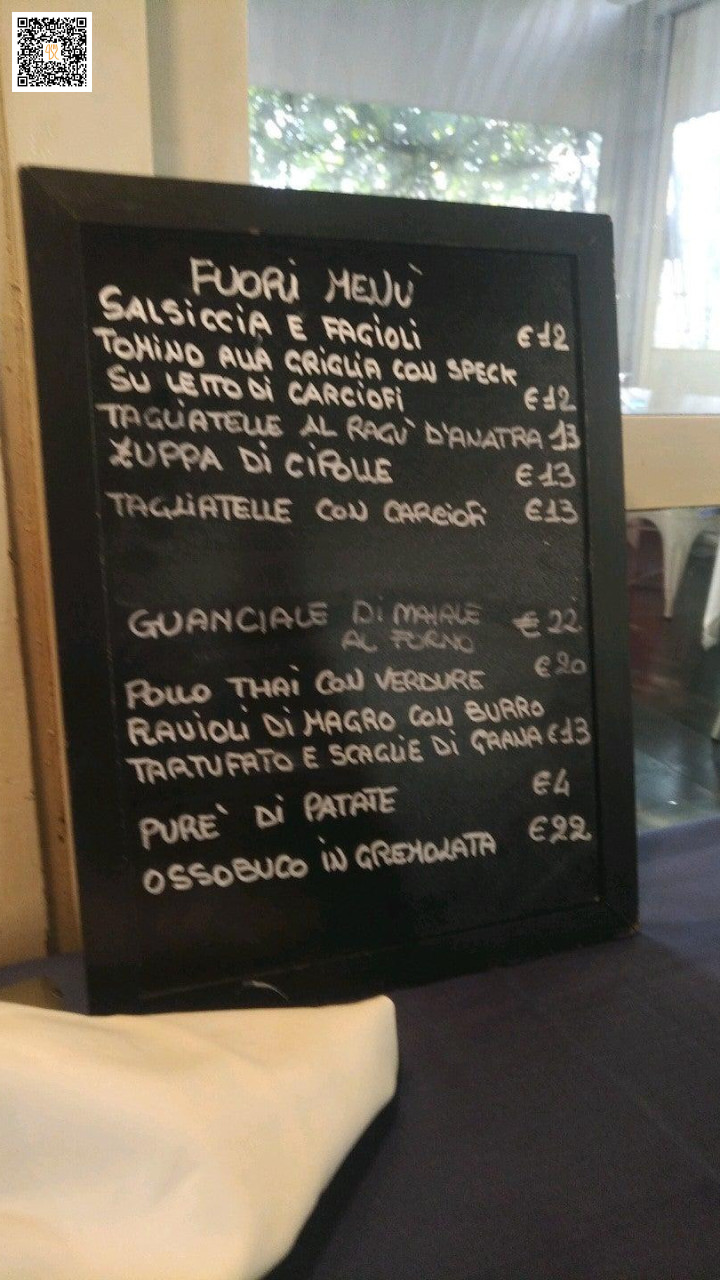 FUORI MENÙ
SALSICCIA E FAGIOLI €12
TOMINO ALLA GRIGLIA CON SPECK
SU LETTO DI CARCIOFI €12
TAGLIATELLE AL RAGÙ D'ANATRA 13
ZUPPA DI CIPOLLE €13
TAGLIATELLE CON CARCIOFI €13
GUANCIALE DI MAIALE €22
AL FORNO
POLLO THAI CON VERDURE €20
RAVIOLI DI MAGRO CON BURRO
TARTUFATO E SCAGLIE DI GRANA €13
PURE' DI PATATE €4
OSSOBUCO IN GREMOLATA €22